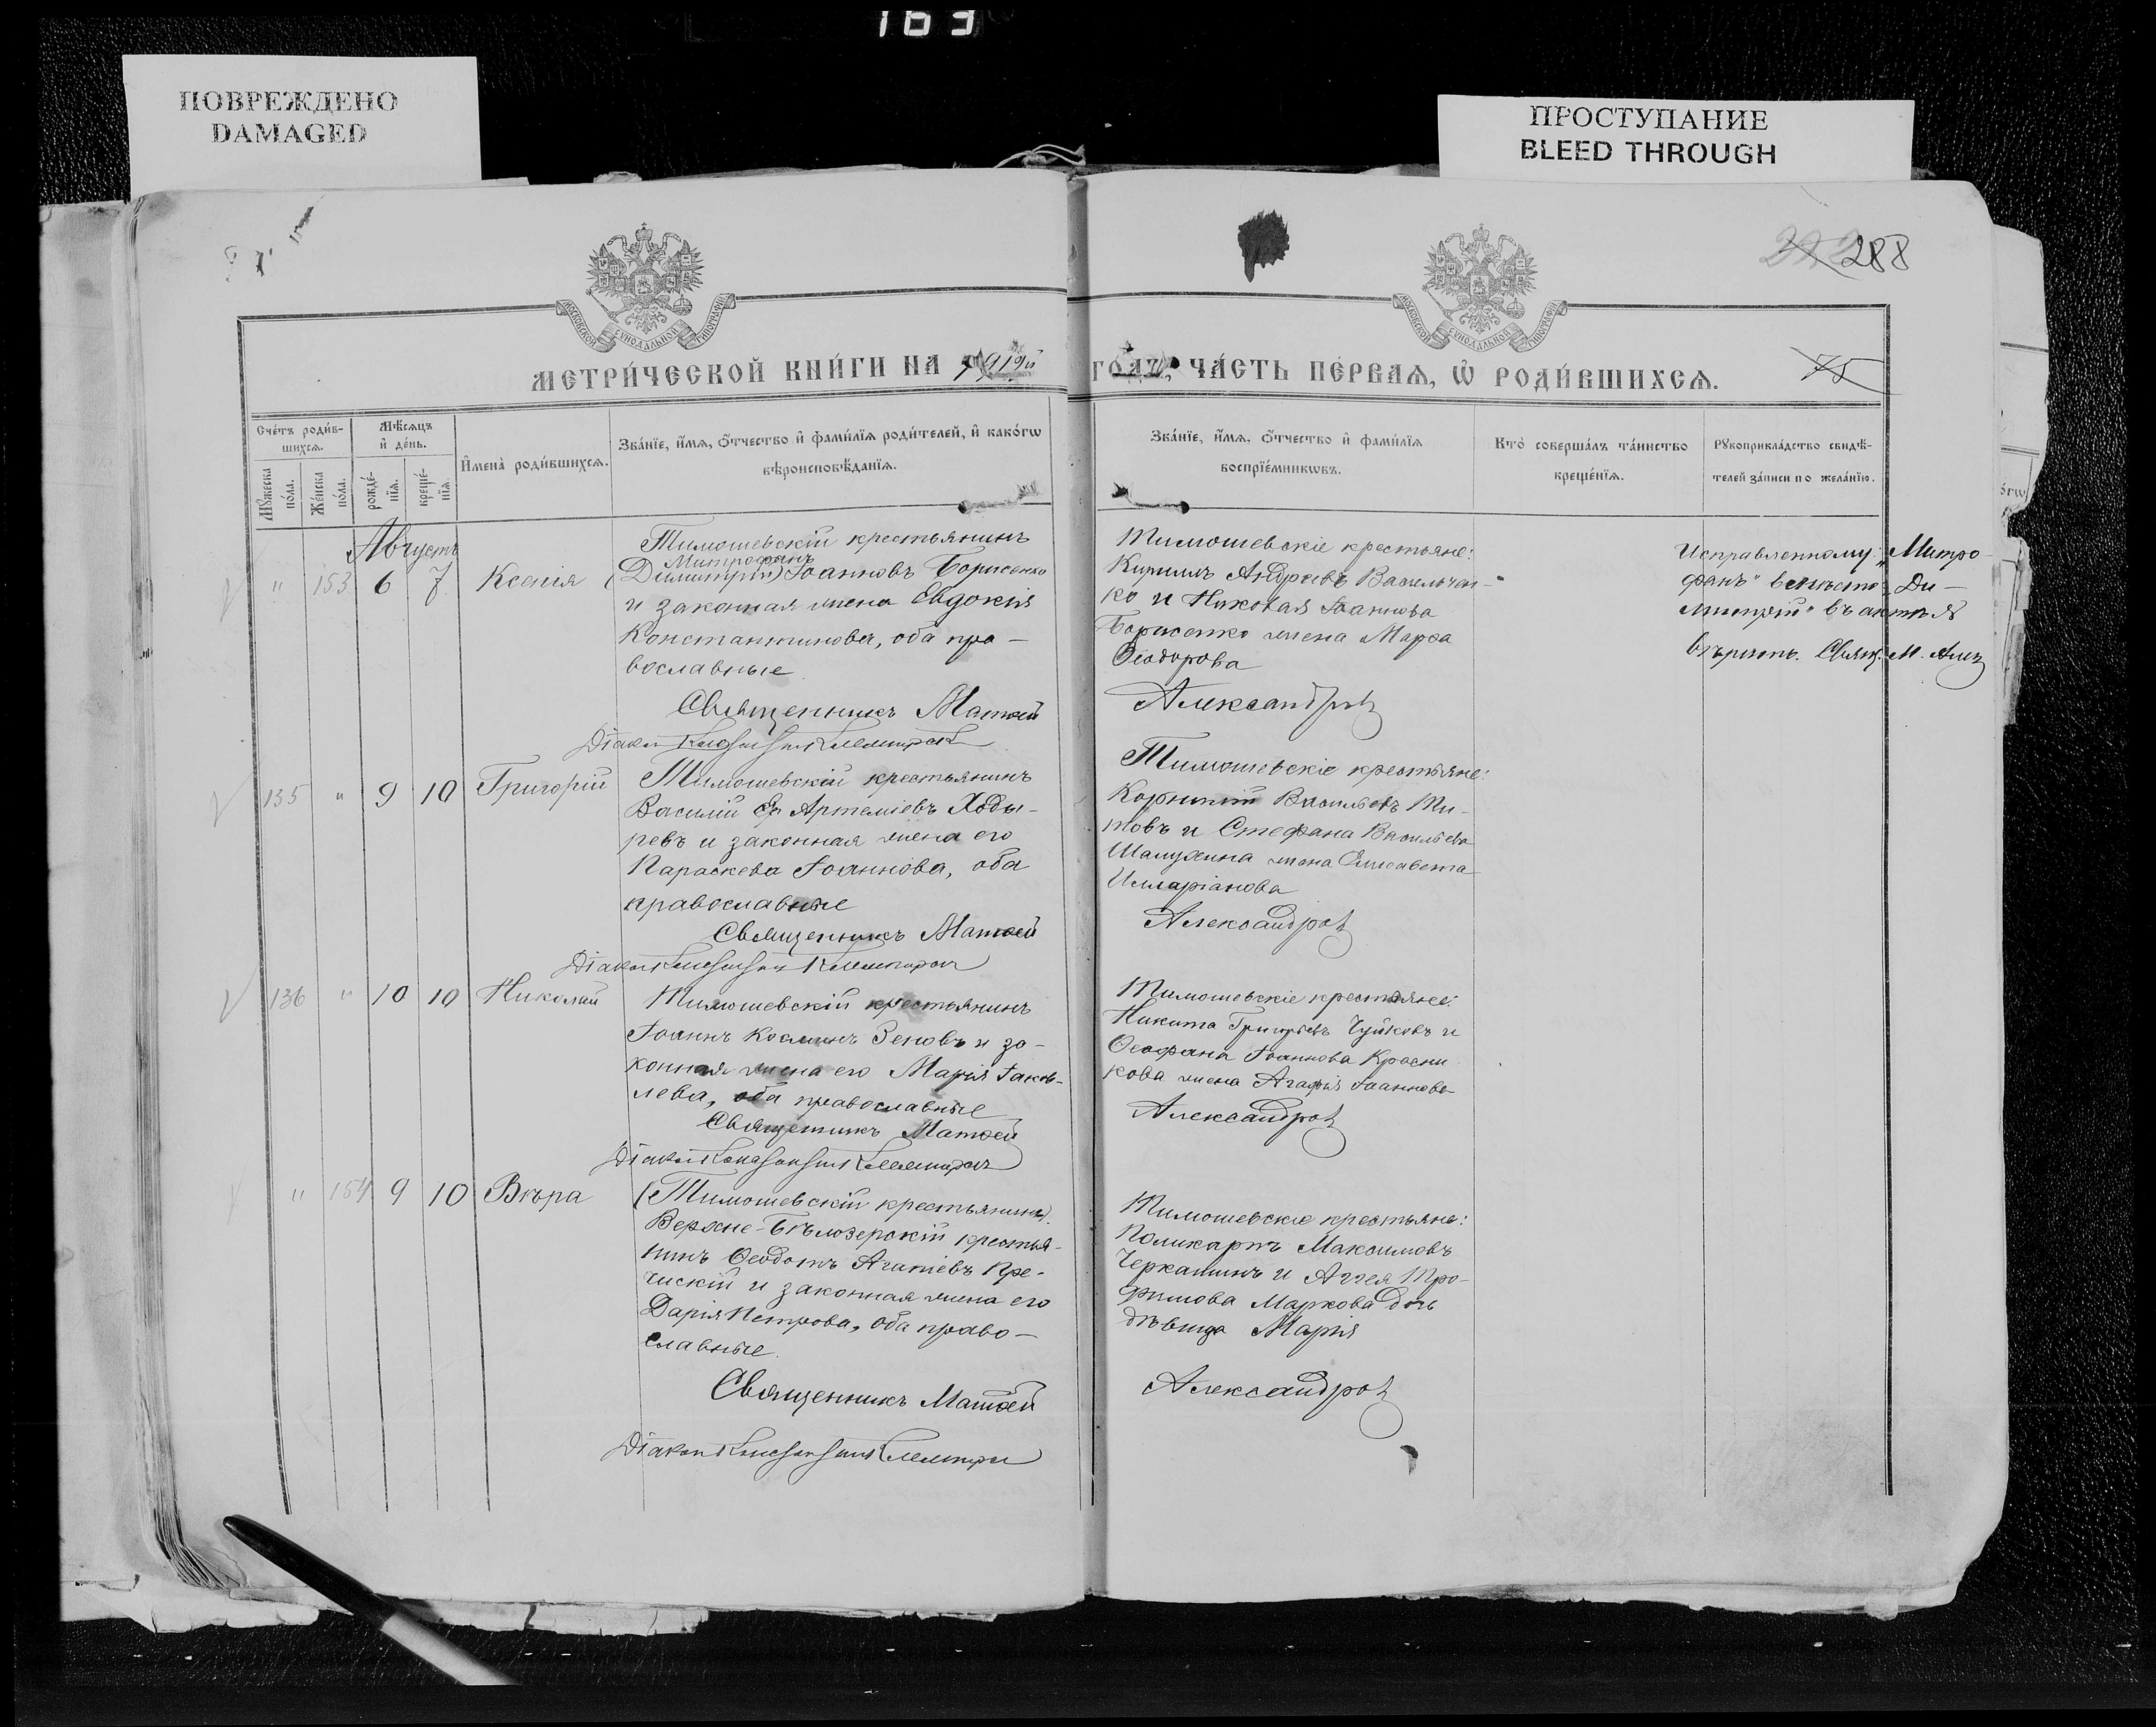 163
ПОВРЕЖДЕНО
DAMAGED
ПРОСТУПАНИЕ
BLEED THROUGH
288
МОСКОВСКОЙ СѴНОДАЛЬНОЙ ТИПОГРАФІИ
МОСКОВСКОЙ СѴНОДАЛЬНОЙ ТИПОГРАФІИ
МЕТРИ́ЧЕСКОЙ КНИ́ГИ НА 1919й ГОДЪ, ЧА́СТЬ ПЕ́РВАѦ, Ѡ҆ РОДИ́ВШИХСѦ.
75
Сче́тъ роди́в-
шихсѧ.
Мꙋ́жеска
по́ла.
Же́нска
по́ла.
Мѣ́сѧцъ
и҆ де́нь.
рожде́-
нїѧ.
креще́-
нїѧ.
И҆мена̀ роди́вшихсѧ.
Зва́нїе, и҆́мѧ, ѻ҆́тчество и҆ фами́лїѧ роди́телей, и҆ како́гѡ
вѣроисповѣ́данїѧ.
Зва́нїе, и҆́мѧ, ѻ҆́тчество и҆ фами́лїѧ
воспрїе́мникѡвъ.
Кто̀ соверша́лъ та́инство
креще́нїѧ.
Рꙋкоприкла́дство свидѣ́-
телей за́писи по жела́нїю.
Августъ
" 153 6 7 Ксенія
Тимошевскій крестьянинъ
Митрофанъ
(Димитрій) Іоанновъ Борисенко
и законная жена Евдокія
Константинова, оба пра-
вославные
Священникъ Матѳей
Тимошевскіе крестьяне:
Кириллъ Андреевъ Васильчен-
ко и Николая Іоаннова
Борисенко жена Марѳа
Ѳеодорова
Александров
Исправленному: "Митро-
фанъ" вмѣсто "Ди-
митрій" въ актѣ
вѣрить. Свящ. М. Алек
Діакон
135 " 9 10 Григорій
Тимошевскій крестьянинъ
Василій Артеміевъ Ходы-
ревъ и законная жена его
Параскева Іоаннова, оба
православные
Священникъ Матѳей
Тимошевскіе крестьяне:
Корнилій Васильевъ Ти-
товъ и Стефана Васильева
Шалухина жена Елисавета
Илларіанова
Александров
Діакон
136 " 10 10 Николай
Тимошевскій крестьянинъ
Іоаннъ Косминъ Зеновъ и за-
конная жена его Марія Іаков-
лева, оба православные
Священникъ Матѳей
Тимошевскіе крестьяне:
Никита Григорьевъ Чуйковъ и
Ѳеофана Іоаннова Красни
кова жена Агафія Іоаннова
Александров
Діакон
" 154 9 10 Вѣра
(Тимошевскій крестьянинъ).
Верхне-Бѣлозерскій крестья-
нинъ Ѳеодотъ Агапіевъ Пре-
чискій и законная жена его
Дарія Петрова, оба право-
славные.
Священникъ Матѳей
Тимошевскіе крестьяне:
Поликарпъ Максимовъ
Черкашинъ и Аггея Тро-
фимова Маркова дочь
дѣвица Марія
Александров
Діакон